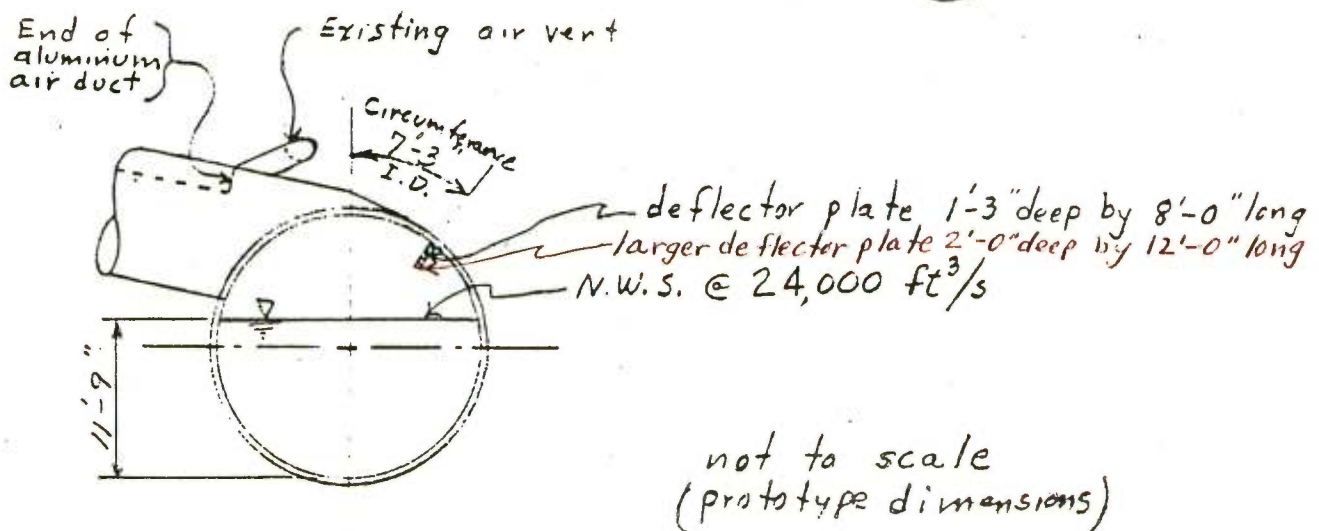 End of
aluminum
air duct
Existing air vent
Circumference
7'-3"
I.D.
deflector plate 1'-3" deep by 8'-0" long
larger deflector plate 2'-0" deep by 12'-0" long
N.W.S. @ 24,000 ft³/s
11'-9"
not to scale
(prototype dimensions)